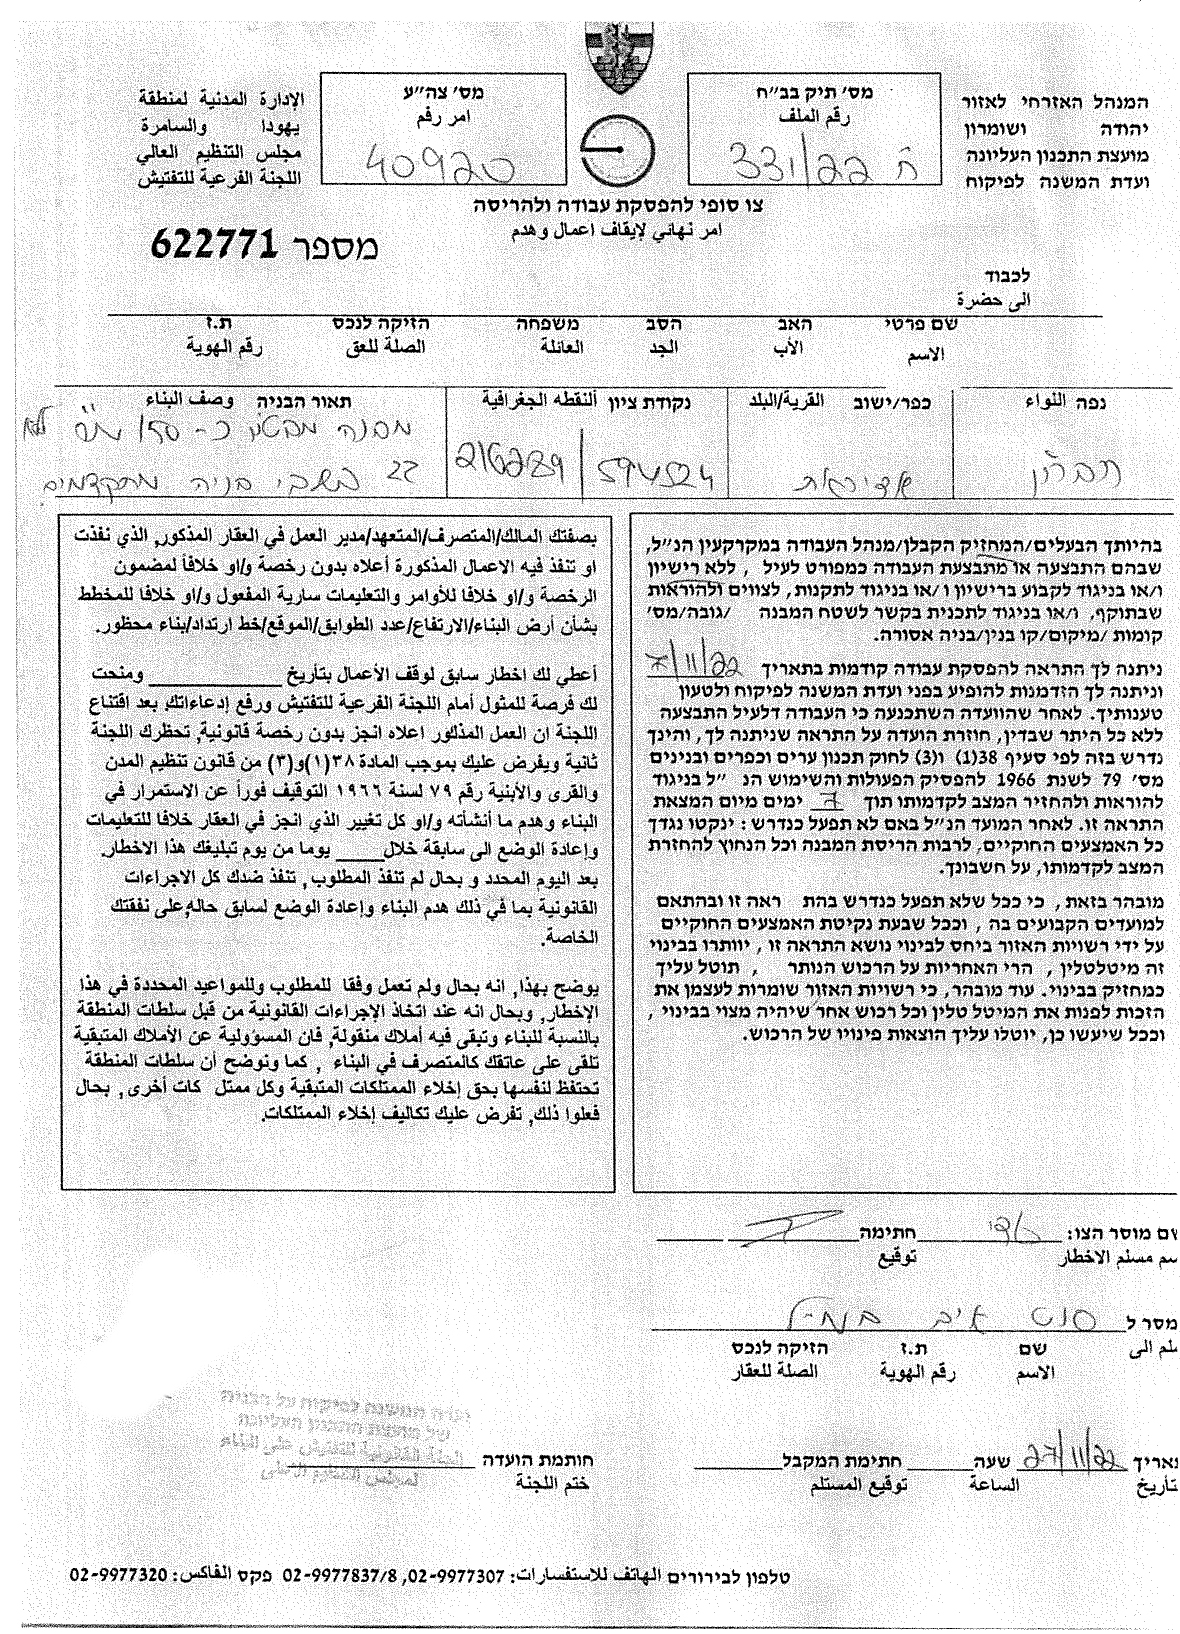 המנהל האזרחי לאזור
יהודה ושומרון
מועצת התכנון העליונה
ועדת המשנה לפיקוח
מס׳ תיק בב״ח
رقم الملف
ח 331/22
מס׳ צה״ע
امر رقم
40920
الإدارة المدنية لمنطقة
يهودا والسامرة
مجلس التنظيم العالي
اللجنة الفرعية للتفتيش
צו סופי להפסקת עבודה ולהריסה
امر نهائي لإيقاف اعمال وهدم
מספר 622771
לכבוד
الى حضرة
שם פרטי האב הסב משפחה הזיקה לנכס ת.ז
الاسم الأب الجد العائلة الصلة للعق رقم الهوية
נפה اللواء
חברון
כפר/ישוב القرية/البلد
נקודת ציון النقطه الجغرافية
216289/594524
תאור הבניה وصف البناء
מבנה מבטון כ- 150 מ"ר ללא
גג בשלבי בניה מתקדמים
בהיותך הבעלים/המחזיק הקבלן/מנהל העבודה במקרקעין הנ״ל,
שבהם התבצעה או מתבצעת העבודה כמפורט לעיל , ללא רישיון
ו/או בניגוד לקבוע ברישיון ו/או בניגוד לתקנות, לצווים ולהוראות
שבתוקף, ו/או בניגוד לתכנית בקשר לשטח המבנה /גובה/מס׳
קומות /מיקום/קו בנין/בניה אסורה.
ניתנה לך התראה להפסקת עבודה קודמות בתאריך 7/11/22
וניתנה לך הזדמנות להופיע בפני ועדת המשנה לפיקוח ולטעון
טענותיך. לאחר שהוועדה השתכנעה כי העבודה דלעיל התבצעה
ללא כל היתר שבדין, חוזרת הועדה על התראה שניתנה לך, והינך
נדרש בזה לפי סעיף 38(1) ו(3) לחוק תכנון ערים וכפרים ובנינים
מס׳ 79 לשנת 1966 להפסיק הפעולות והשימוש הנ ״ל בניגוד
להוראות ולהחזיר המצב לקדמותו תוך 7 ימים מיום המצאת
התראה זו. לאחר המועד הנ״ל באם לא תפעל כנדרש : ינקטו נגדך
כל האמצעים החוקיים, לרבות הריסת המבנה וכל הנחוץ להחזרת
המצב לקדמותו, על חשבונך.
מובהר בזאת , כי ככל שלא תפעל כנדרש בהת ראה זו ובהתאם
למועדים הקבועים בה , וככל שבעת נקיטת האמצעים החוקיים
על ידי רשויות האזור ביחס לבינוי נושא התראה זו , יוותרו בבינוי
זה מיטלטלין , הרי האחריות על הרכוש הנותר , תוטל עליך
כמחזיק בבינוי. עוד מובהר, כי רשויות האזור שומרות לעצמן את
הזכות לפנות את המיטל טלין וכל רכוש אחר שיהיה מצוי בבינוי ,
וככל שיעשו כן, יוטלו עליך הוצאות פינויו של הרכוש.
بصفتك المالك/المتصرف/المتعهد/مدير العمل في العقار المذكور, الذي نفذت
او تنفذ فيه الاعمال المذكورة أعلاه بدون رخصة و/او خلافاً لمضمون
الرخصة و/او خلافا للأوامر والتعليمات سارية المفعول و/او خلافا للمخطط
بشأن أرض البناء/الارتفاع/عدد الطوابق/الموقع/خط ارتداد/بناء محظور.
أعطي لك اخطار سابق لوقف الأعمال بتأريخ ومنحت
لك فرصة للمثول أمام اللجنة الفرعية للتفتيش ورفع إدعاءاتك. بعد اقتناع
اللجنة ان العمل المذكور اعلاه انجز بدون رخصة قانونية, تحظرك اللجنة
ثانية ويفرض عليك بموجب المادة ٣٨(١)و(٣) من قانون تنظيم المدن
والقرى والأبنية رقم ٧٩ لسنة ١٩٦٦ التوقيف فوراً عن الاستمرار في
البناء وهدم ما أنشأته و/او كل تغيير الذي انجز في العقار خلافا للتعليمات
وإعادة الوضع الى سابقة خلال يوما من يوم تبليغك هذا الاخطار.
بعد اليوم المحدد و بحال لم تنفذ المطلوب , تنفذ ضدك كل الاجراءات
القانونية بما في ذلك هدم البناء وإعادة الوضع لسابق حاله, على نفقتك
الخاصة.
يوضح بهذا, انه بحال ولم تعمل وفقا للمطلوب وللمواعيد المحددة في هذا
الإخطار, وبحال انه عند اتخاذ الإجراءات القانونية من قبل سلطات المنطقة
بالنسبة للبناء وتبقى فيه أملاك منقولة, فان المسؤولية عن الأملاك المتبقية
تلقى على عاتقك كالمتصرف في البناء , كما ونوضح أن سلطات المنطقة
تحتفظ لنفسها بحق إخلاء الممتلكات المتبقية وكل ممتل كات أخرى, بحال
فعلوا ذلك, تفرض عليك تكاليف إخلاء الممتلكات.
שם מוסר הצו: חתימה
سم مسلم الاخطار توقيع
מסר ל
سلم الى
שם ת.ז הזיקה לנכס
الاسم رقم الهوية الصلة للعقار
תאריך 27/11/22 שעה חתימת המקבל חותמת הועדה
تأريخ الساعة توقيع المستلم ختم اللجنة
ועדת המשנה לפיקוח על הבניה
של מועצת התכנון העליונה
للتفتيش على البناء
لمجلس التنظيم الاعلى
טלפון לבירורים الهاتف للاستفسارات: 02-9977307, 02-9977837/8 פקס الفاكس: 02-9977320